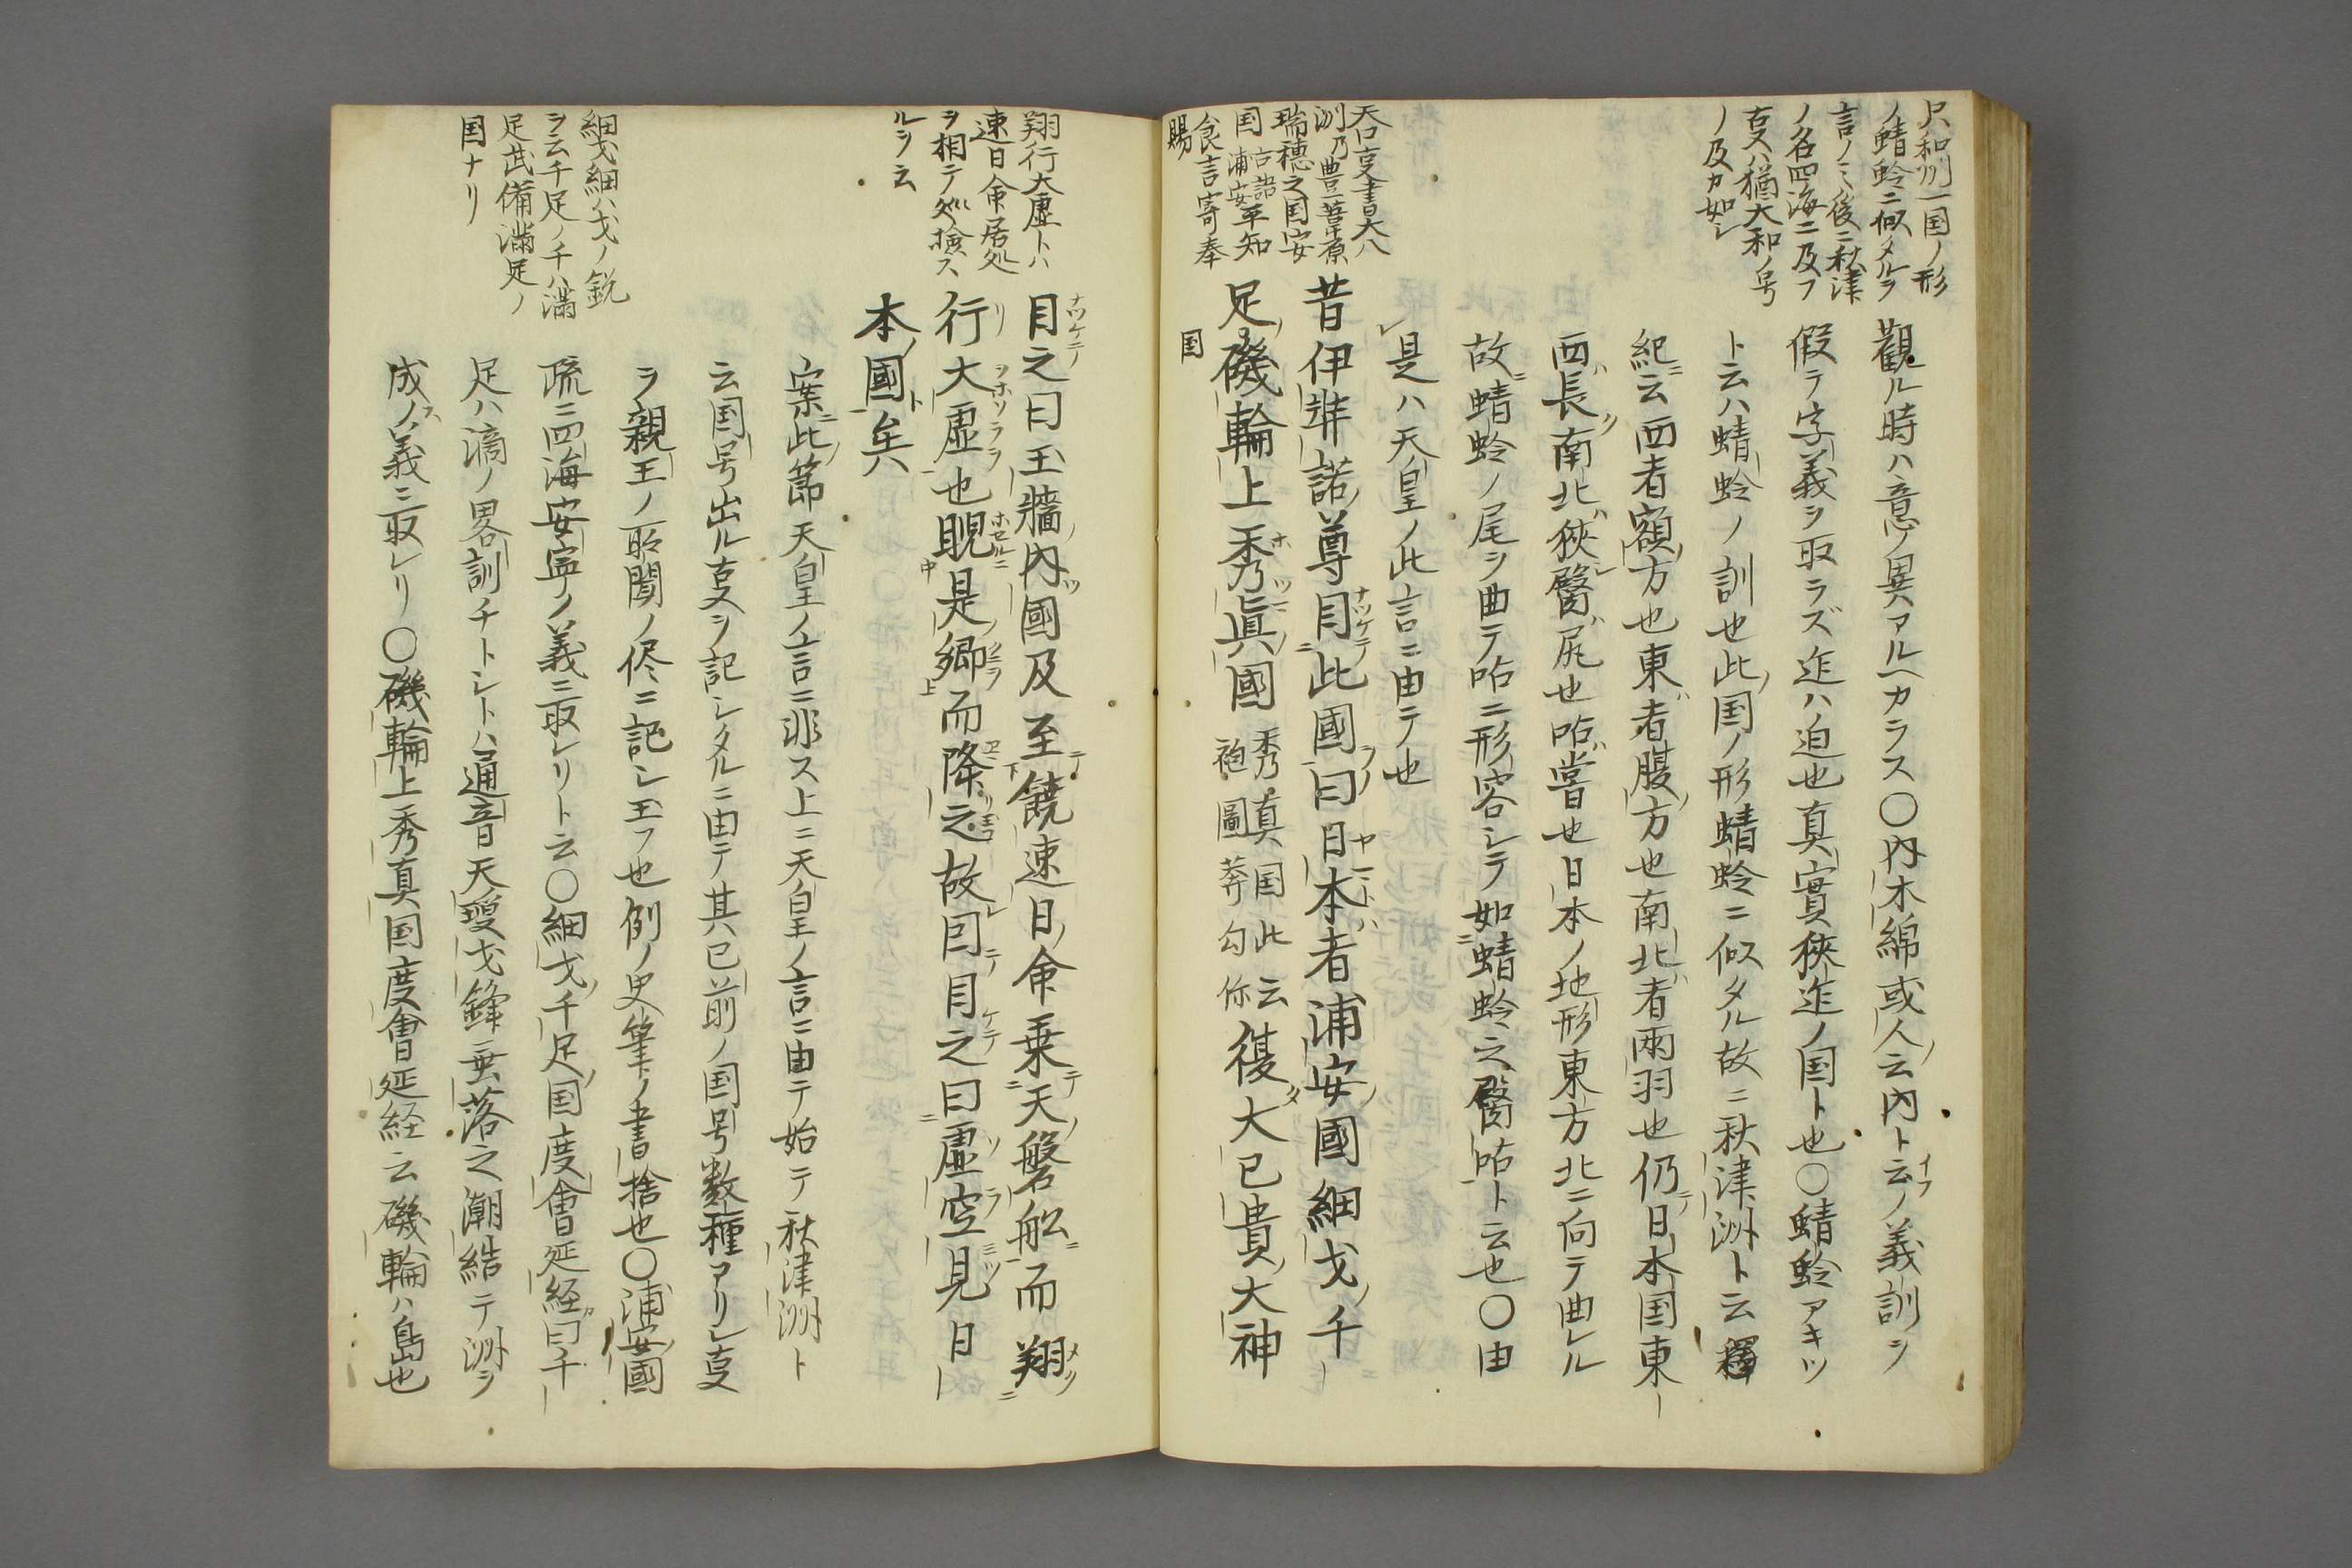 只和州一国ノ形
ノ蜻蛉ニ似タルヲ
言ノミ後ニ秋津
ノ名四海ニ及フ
亥ハ猶大和ノ号
ノ及カ如シ
觀ル時ハ意ノ異アルヘカラス〇内木綿或人云内ト云ノ義訓ヲ
假テ字義ヲ取ラズ迮ハ迫也真實狹迮ノ国ト也〇蜻蛉アキツ
ト云ハ蜻蛉ノ訓也此国ノ形蜻蛉ニ似タル故ニ秋津洲ト云釋
紀云西者額方也東者腹方也南北者兩羽也仍日本国東
西長南北狹臀尻也呫嘗也日本ノ地形東方北ニ向テ曲レル
故蜻蛉ノ尾ヲ曲テ呫ニ形容シテ如蜻蛉之臀呫ト云也〇由
是ハ天皇ノ此言ニ由テ也
天口亥書大八
洲乃豊葦原
瑞穂之国安
国古語浦安平知
食言寄奉
賜
昔伊弉諾尊目此國曰日本者浦安國細戈千
足国磯輪上秀眞國秀真国此云袍圖莽勾你復大已貴大神
翔行大虚トハ
速日命居処
ヲ相テ巡檢ス
ルヲ云
目之曰玉牆內國及至饒速日命乗天磐舩而翔
行大虚也睨是郷而降之故因目之曰虚空見日
本國矣
案此節天皇ノ言ニ非ス上ニ天皇ノ言ニ由テ始テ秋津洲ト
云国号出ル亥ヲ記シタルニ由テ其已前ノ国号数種アリシ亥
ヲ親王ノ所聞ノ侭ニ記シ玉フ也例ノ史筆ノ書捨也〇浦安國
疏ニ四海安寧ノ義ニ取レリト云〇細戈千足国度會延経曰千
足ハ滴ノ畧訓チトシトハ通音天瓊戈鋒垂落之潮結テ洲ヲ
成ノ義ニ取レリ〇磯輪上秀真国度會延経云磯輪ハ島也
細戈細ハ戈ノ鋭
ヲ云千足ノ千ハ満
足武備満足ノ
国ナリ